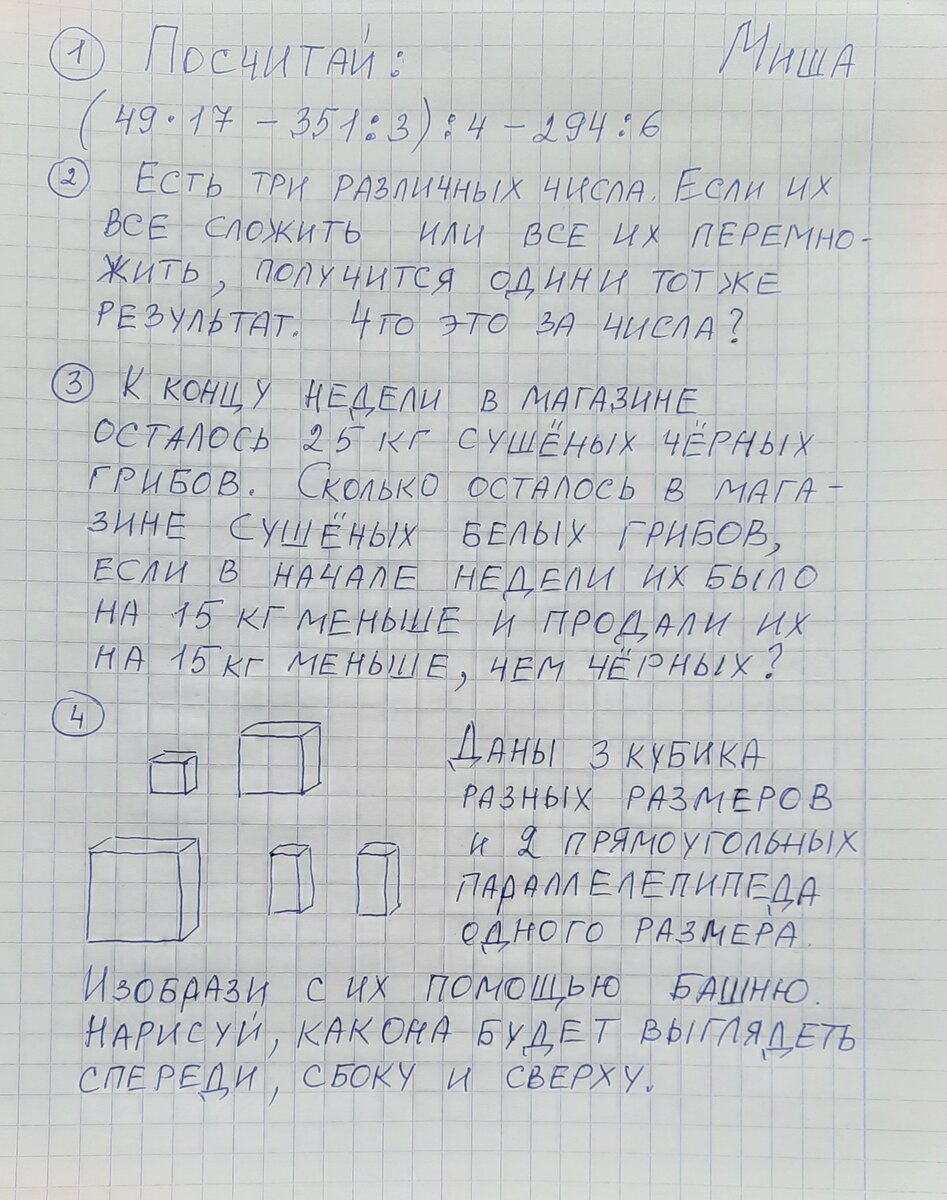 ① Посчитай: Миша
(49·17 – 351:3):4 – 294:6
② Есть три различных числа. Если их
все сложить или все их перемно-
жить, получится один и тот же
результат. Что это за числа?
③ К концу недели в магазине
осталось 25 кг сушёных чёрных
грибов. Сколько осталось в мага-
зине сушёных белых грибов,
если в начале недели их было
на 15 кг меньше и продали их
на 15 кг меньше, чем чёрных?
④
Даны 3 кубика
разных размеров
и 2 прямоугольных
параллелепипеда
одного размера.
Изобрази с их помощью башню.
Нарисуй, как она будет выглядеть
спереди, сбоку и сверху.